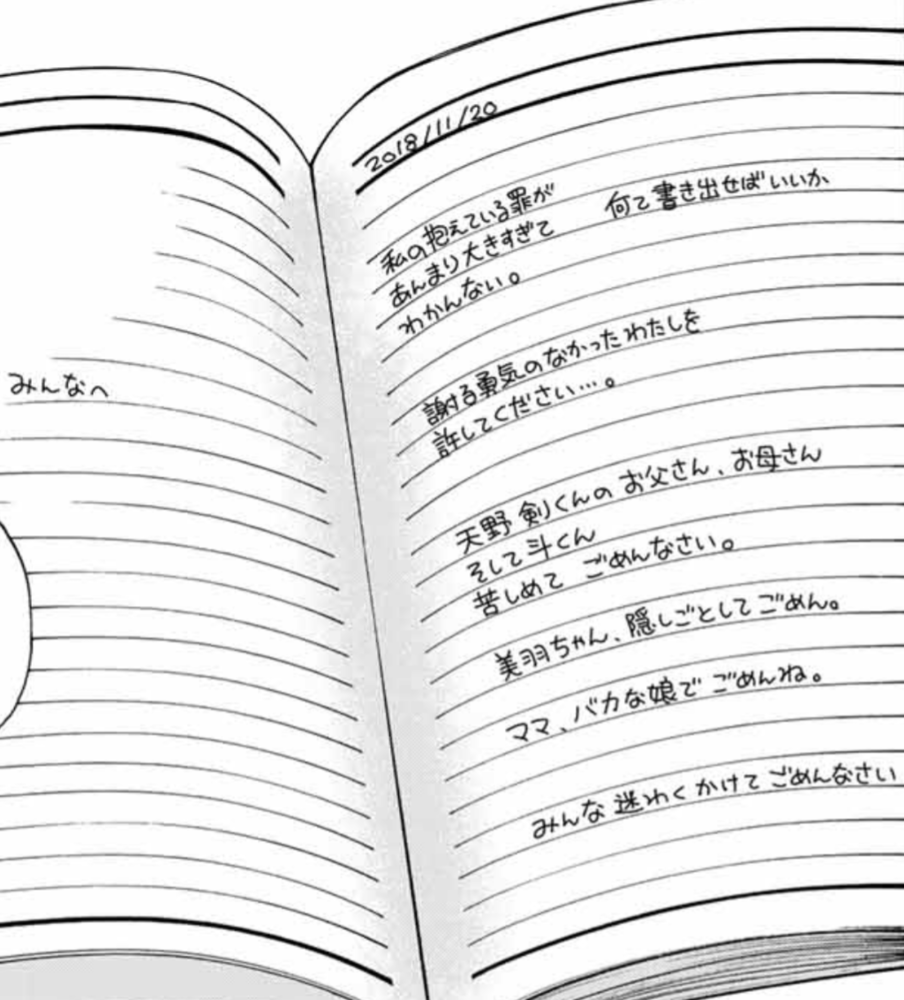 みんなへ
2018/11/20
私の抱えている罪が
あんまり大きすぎて 何て書き出せばいいか
わかんない。
謝る勇気のなかったわたしを
許してください…。
天野 剣くんの お父さん、お母さん
そして斗くん
苦しめて ごめんなさい。
美羽ちゃん、隠しごとしてごめん。
ママ、バカな娘で ごめんね。
みんな 迷わくかけて ごめんなさい